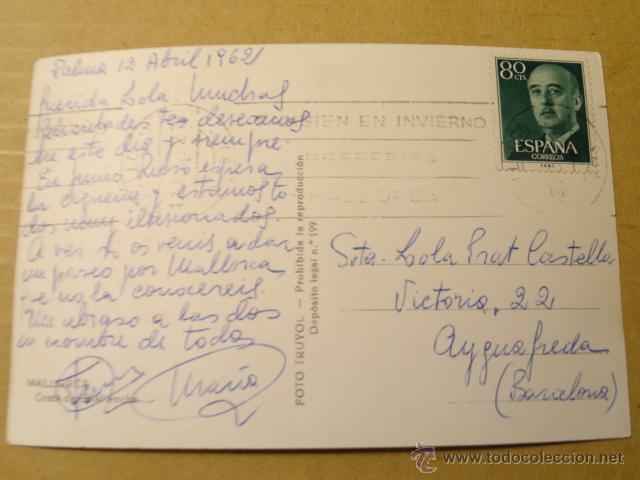 Palma 12 Abril 1962
Querida Lola: Muchas
felicidades te deseamos
en este dia y siempre.
En puro espera
la cigüeña y estamos to
dos ilusionados.
A ver si os venis a dar
un paseo por Mallorca
no la conoceréis.
Un abrazo a las dos
en nombre de todos
María
MALLORCA
Costa
FOTO TRUYOL — Prohibida la reproducción
Depósito legal n.º 199
80 CTS
ESPAÑA
CORREOS
BIEN EN INVIERNO
MALLORCA
Srta. Lola Prat Castella
Victoria, 22
Ayguafreda
(Barcelona)
© www.todocoleccion.net